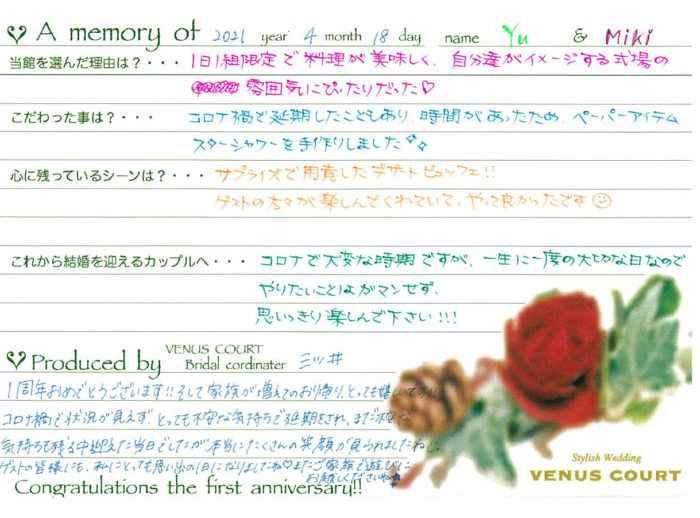 A memory of 2021 year 4 month 18 day name Yu & Miki
当館を選んだ理由は？・・・ 1日1組限定で料理が美味しく、自分達がイメージする式場の
雰囲気にぴったりだった♡
こだわった事は？・・・ コロナ禍で延期したこともあり、時間があったため、ペーパーアイテム
スターシャワーを手作りしました
心に残っているシーンは？・・・ サプライズで用意したデザートビュッフェ!!
ゲストの方々が楽しんでくれていて、やって良かったです
これから結婚を迎えるカップルへ・・・ コロナで大変な時期ですが、一生に一度の大切な日なので
やりたいことはガマンせず、
思いっきり楽しんで下さい!!!
Produced by VENUS COURT
Bridal cordinater 三ツ井
1周年おめでとうございます!!そして家族が増えてのお帰り、とっても嬉しいです
コロナ禍で状況が見えず、とっても不安な気持ちで延期をされ、まだ不安な
気持ちも残る中迎えた当日でしたが、本当にたくさんの笑顔が見られましたね
ゲストの皆様にも、私にとっても思い出の1日になりましたね♡またご家族で遊びに
お越しくださいね
Stylish Wedding
VENUS COURT
Congratulations the first anniversary!!